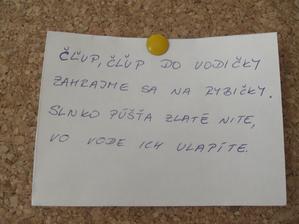 ČĽUP, ČĽUP DO VODIČKY
ZAHRAJME SA NA RYBIČKY.
SLNKO PÚŠŤA ZLATÉ NITE,
VO VODE ICH ULAPÍTE.